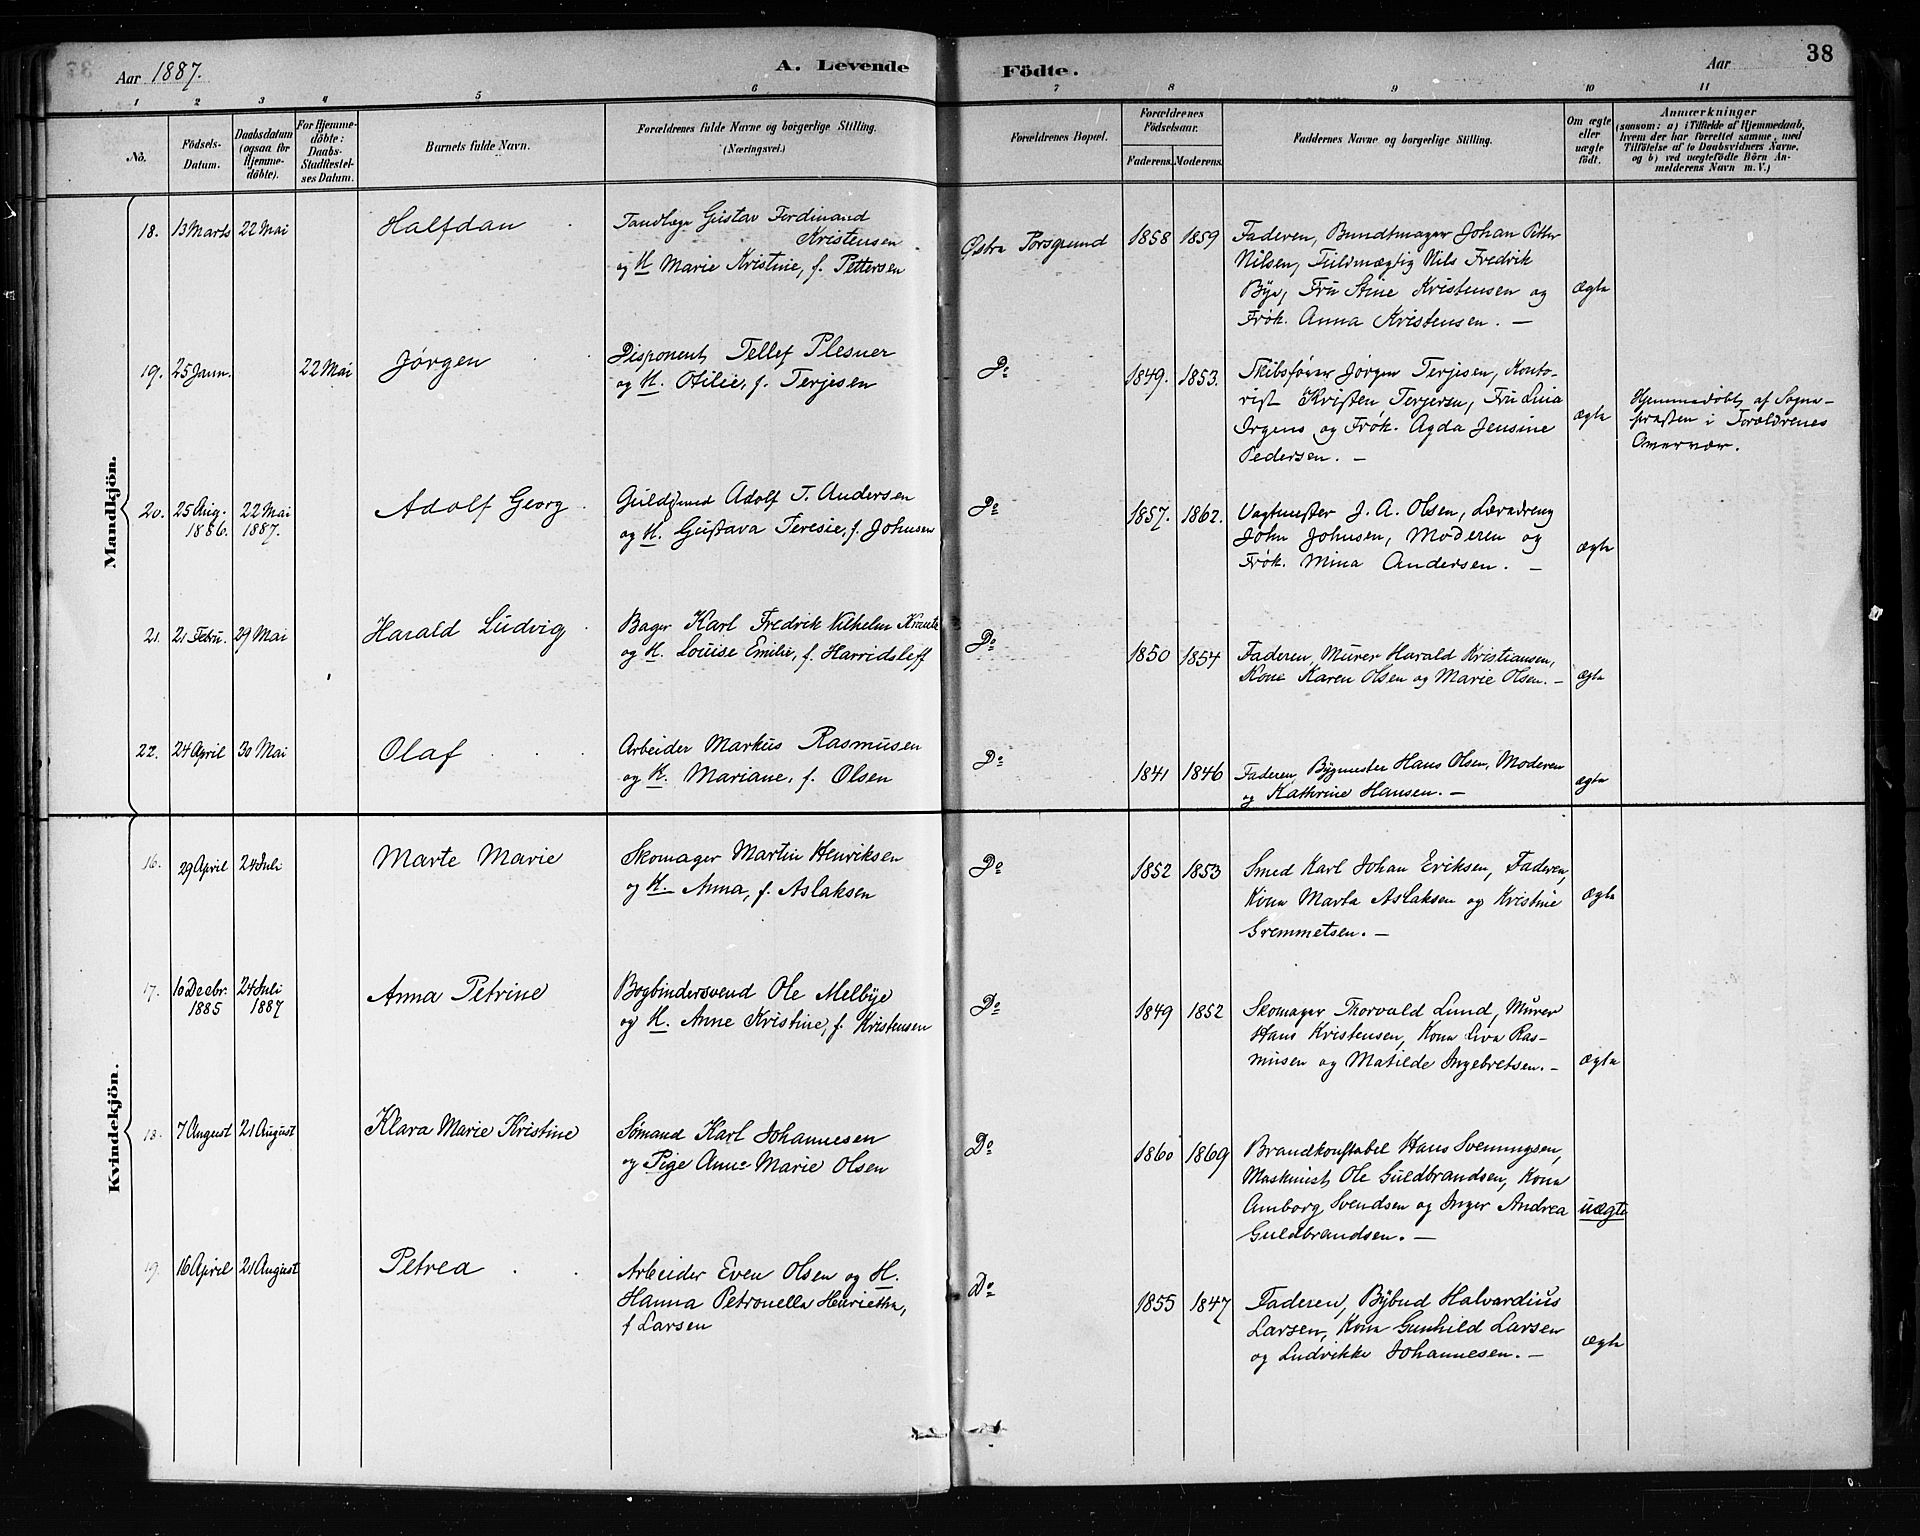 Aar 1887.
A. Levende Födte.
Aar
38
1 2 3 4 5 6 7 8 9 10 11
No.
Födsels-
Datum.
Daabsdatum
(ogsaa for
Hjemme-
döbte).
For Hjemme-
döbte:
Daabs-
Stadfæstel-
ses Datum.
Barnets fulde Navn.
Forældrenes fulde Navne og borgerlige Stilling.
(Næringsvei.)
Forældrenes Bopæl.
Forældrenes
Födselsaar.
Faderens. Moderens.
Faddernes Navne og borgerlige Stilling.
Om ægte
eller
uægte
födt.
Anmærkninger
(saasom: a) i Tilfælde af Hjemmedaab,
hvem der har forrettet samme, med
Tilföielse af to Daabsvidners Navne,
og b) ved uægtefödte Börn An-
melderens Navn m. V.)
Mandkjön.
18. 13 Marts 22 Mai
Halfdan
Tandlæge Gustav Ferdinand
Kristensen
og H. Marie Kristine, f. Pettersen
Østre Porsgrund
1858 1859
Faderen, Bundtmager Johan Petter
Nilsen, Fuldmægtig Nils Fredrik
Bye, Fru Stine Kristensen og
Frøk. Anna Kristensen. —
Ægte
19. 25 Janu. 22 Mai
Jørgen
Disponent Tellef Plesner
og H. Otilie, f. Terjesen
Do
1849. 1853.
Skibsfører Jørgen Terjesen, Konto-
rist Kristen Terjesen, Fru Lina
Irgens og Frøk. Agda Jensine
Pedersen. —
ægte
Hjemmedøbt af Sogne-
præsten i Forældrenes
20. 25 Aug. 1886. 22 Mai 1887.
Adolf Georg
Guldsmed Adolf T. Andersen
og H. Gustava Teresie, f. Johnsen
Do
1857. 1862.
Vagtmester J. A. Olsen, Læredreng
John Johnsen, Moderen og
Frøk. Mina Andersen. —
ægte
21. 21 Febru. 29 Mai
Harald Ludvig
Bager Karl Fredrik Vilhelm Krantz
og H. Louise Emilie, f. Harridsleff
Do
1850 1854
Faderen, Murer Harald Kristiansen,
Kone Karen Olsen og Marie Olsen. —
ægte
22. 24 April 30 Mai
Olaf
Arbeider Markus Rasmusen
og K. Mariane, f. Olsen
Do
1841 1846
Faderen, Bygmester Hans Olsen, Moderen
og Kathrine Hansen. —
ægte
Kvindekjön.
16. 29 April 24 Juli
Marte Marie
Skomager Martin Henriksen
og K. Anna, f. Aslaksen
Do
1852 1853
Smed Karl Johan Eriksen, Faderen,
Kone Marte Aslaksen og Kristine
Gremmetsen. —
ægte
17. 10 Decbr. 1885 24 Juli 1887
Anna Petrine
Bogbindersvend Ole Melbye
og H. Anne Kristine, f. Kristensen
Do
1849 1852
Skomager Thorvald Lund, Murer
Hans Kristensen, Kone Liva Ras-
musen og Matilde Ingebretsen. —
ægte
18. 7 August 21 August
Klara Marie Kristine
Sømand Karl Johannesen
og Pige Anne Marie Olsen
Do
1860 1869
Brandkonstabel Hans Svenningsen,
Maskinist Ole Guldbrandsen, Kone
Amborg Svendsen og Inger Andrea
Guldbrandsen. —
uægte
19. 16 April 21 August
Petrea
Arbeider Even Olsen og H.
Hanna Petronella Henriette,
f Larsen
Do
1855 1847
Faderen, Bybud Halvardius
Larsen, Kone Gunhild Larsen
og Ludvikke Johannesen. —
ægte